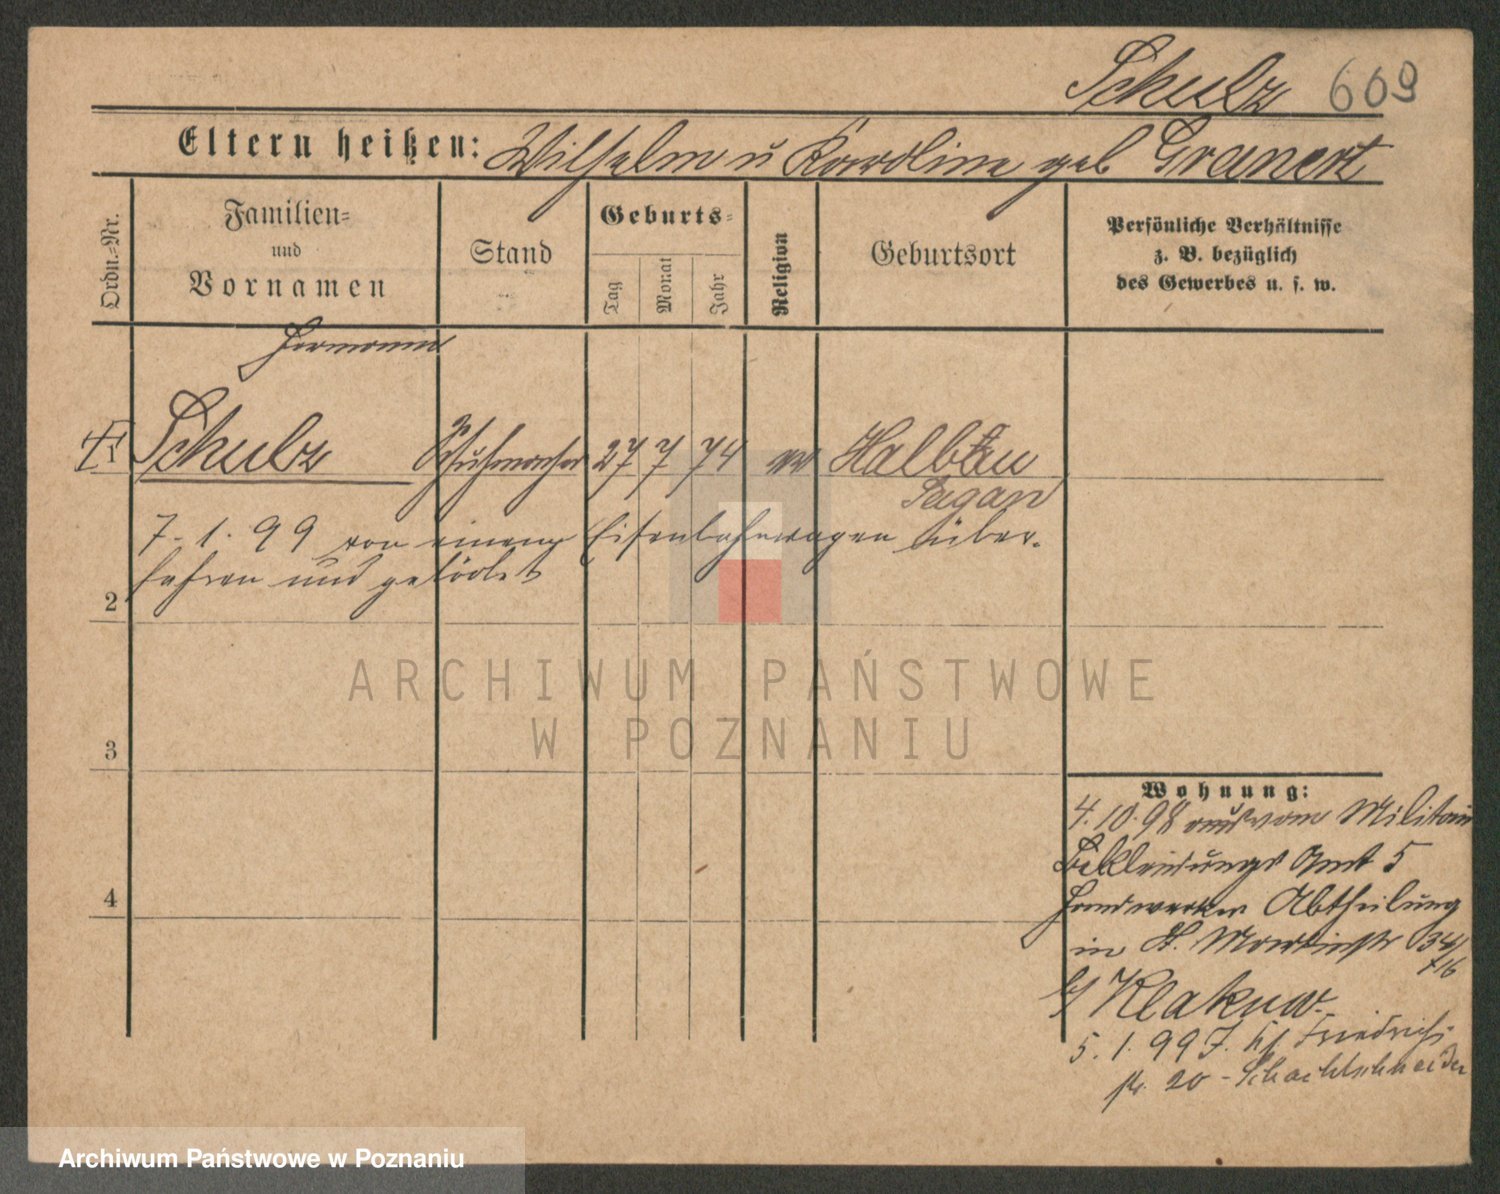 Schulz 609
Eltern heißen: Wilhelm u Karoline geb Granert
Ordn.=Nr.
Familien=
und
Vornamen
Stand
Geburts=
Tag
Monat
Jahr
Religion
Geburtsort
Persönliche Verhältnisse
z. B. bezüglich
des Gewerbes u. s. w.
Hermann
1 Schulz Schuhmacher 27 7 74 ev Halbau
Sagan
7. 1. 99 von einem Eisenbahnwagen über-
fahren und getödtet
2
3
4
Wohnung:
4. 10. 98 vom Militair
Bekleidungs Amt 5
Handwerker Abtheilung
in Martinstr 34/
b/ Klakuw
5. 1. 99 J. Friedrich-
str. 20 - Schachtschneider
ARCHIWUM PAŃSTWOWE
W POZNANIU
Archiwum Państwowe w Poznaniu